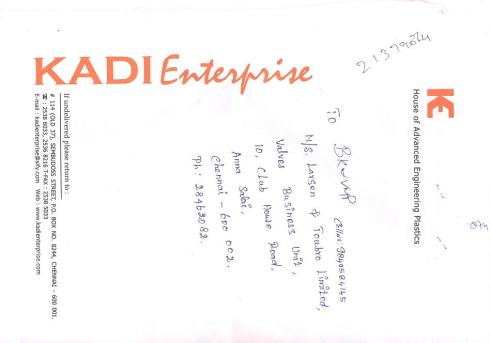 KADI Enterprise
KE
House of Advanced Engineering Plastics
To
M/s. Larsen & Toubro Limited,
Valves Business Unit,
10, Club House Road,
Anna Salai,
Chennai - 600 002.
Ph: 28462082.
If undelivered please return to :
# 114 (OLD 37), SEMBUDOSS STREET, P.O. BOX NO. 8244, CHENNAI - 600 001.
: 2538 6033, 2536 8216 T-FAX : 2538 9033
E-mail : kadienterprise@sify.com Web : www.kadienterprise.com